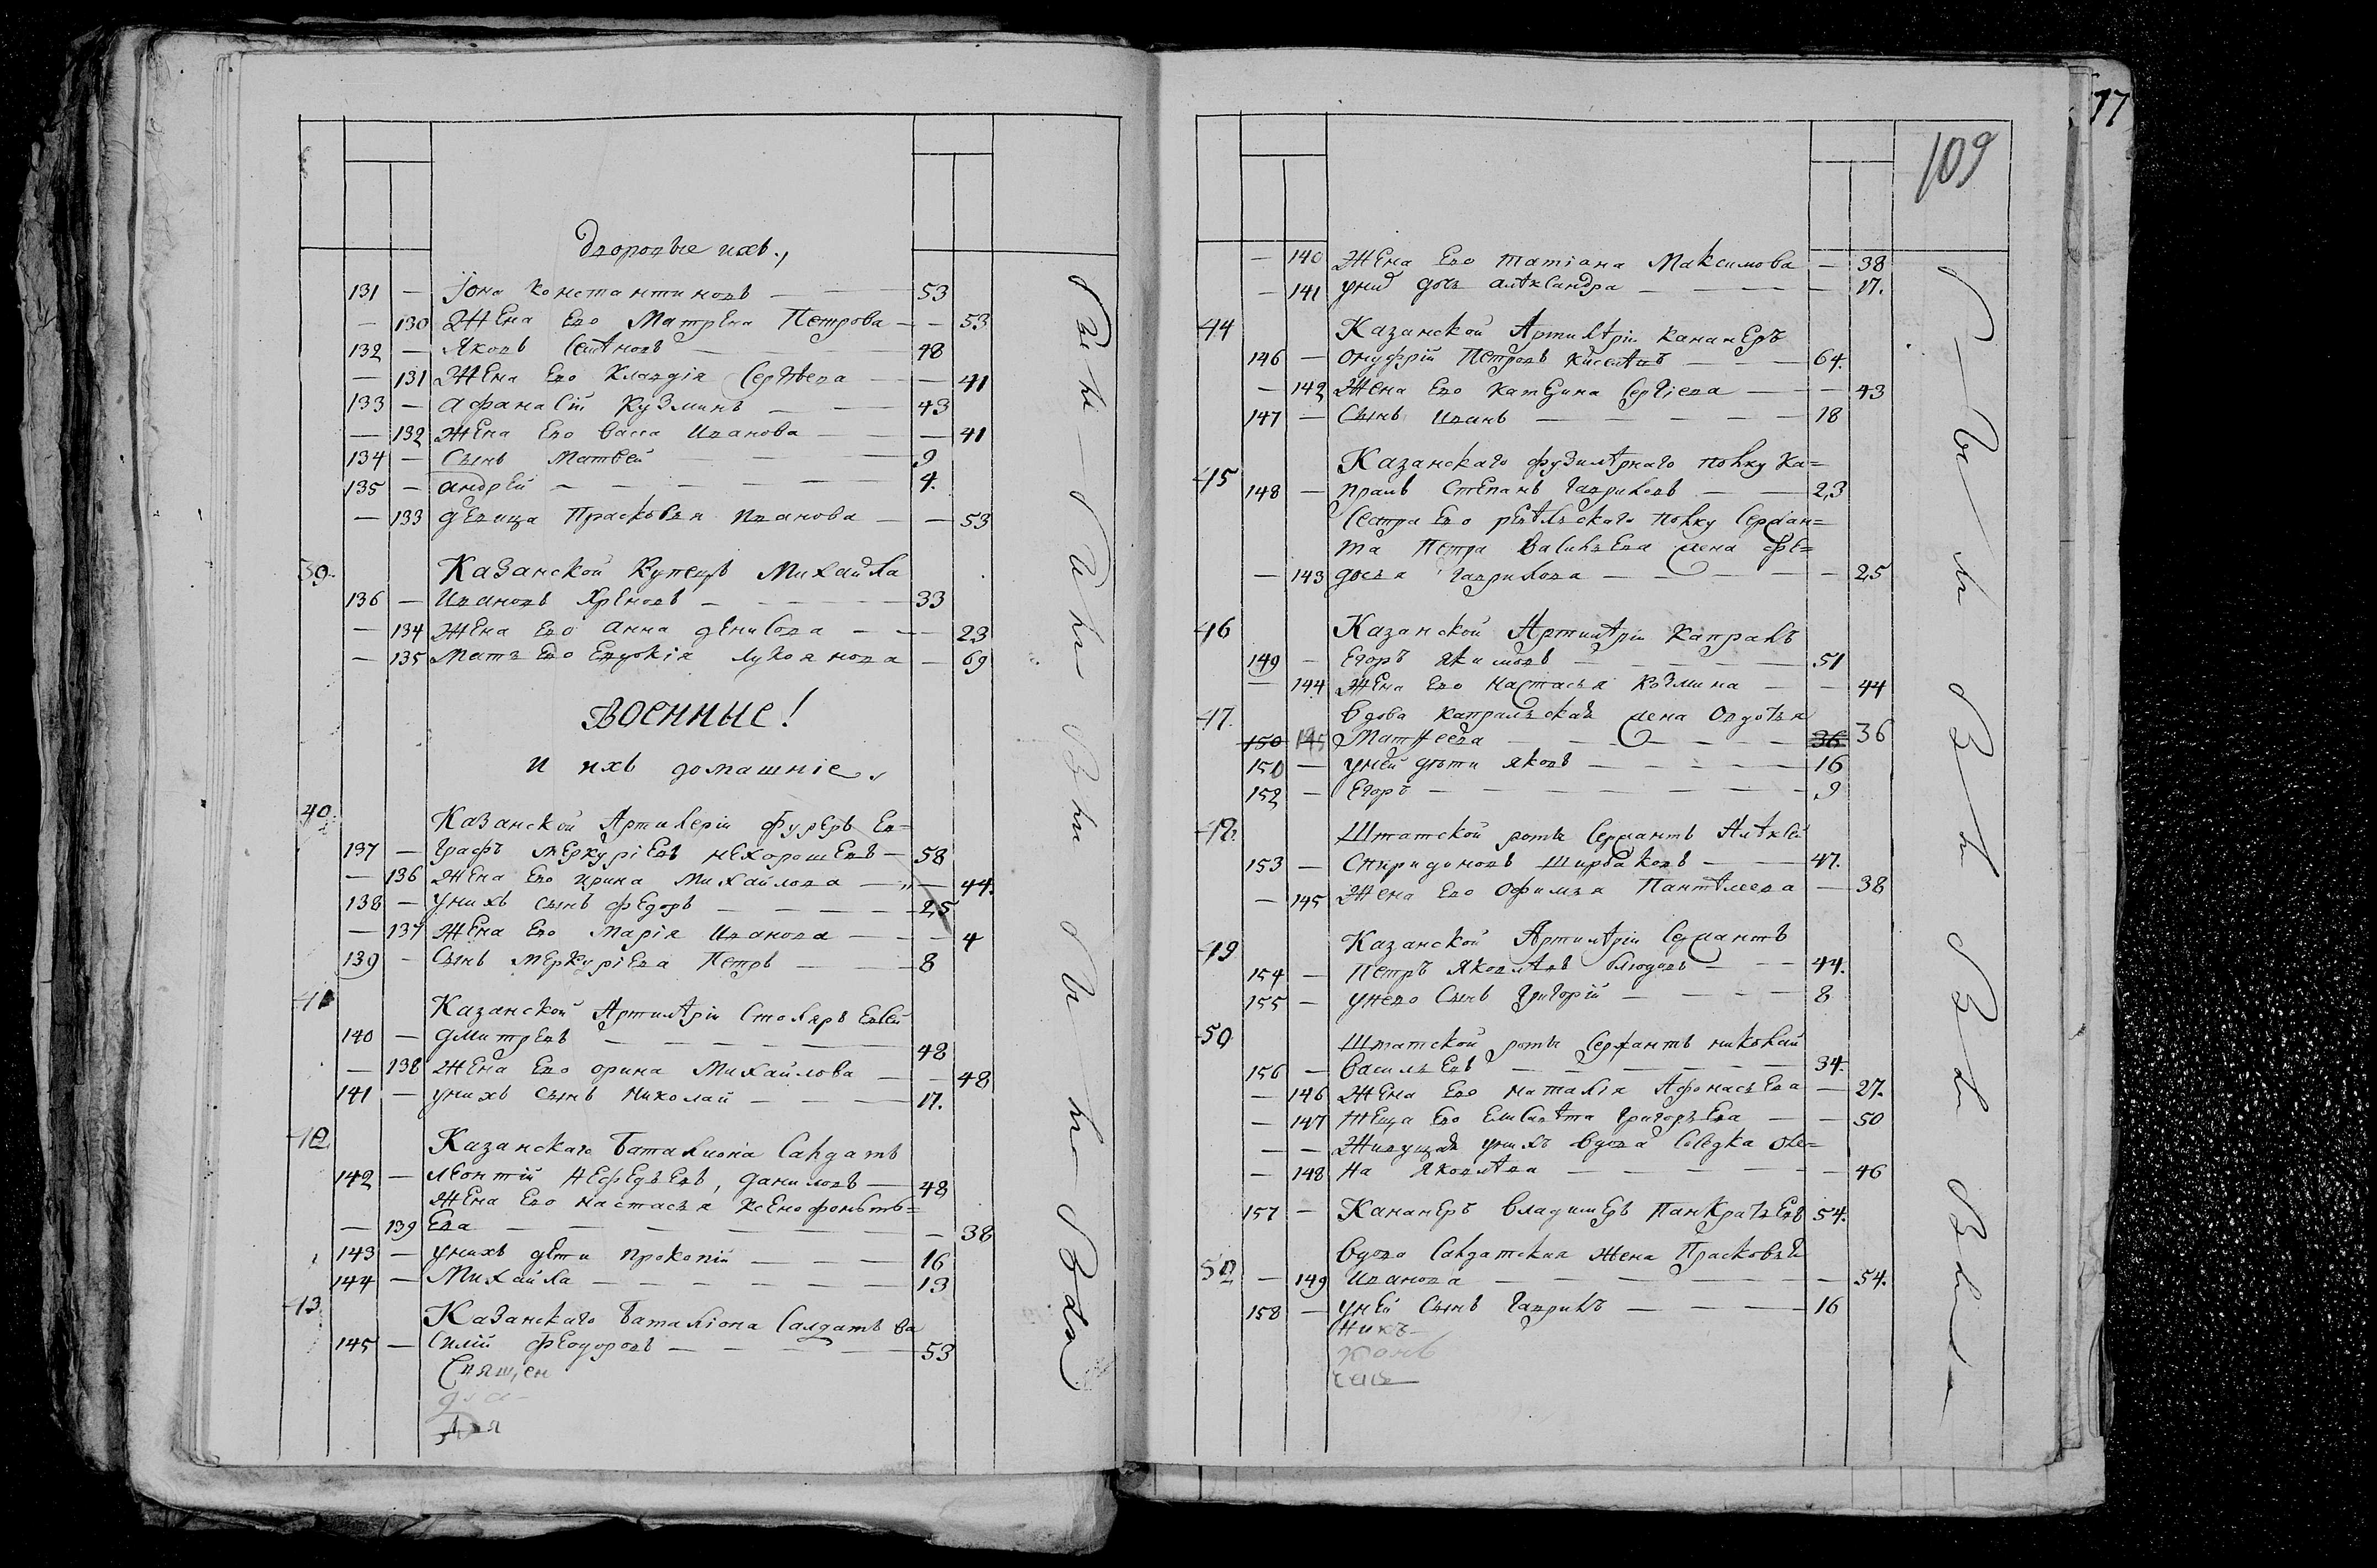 дворовые ихъ.,
131 — Іона Константиновъ — 53
— 130 Жена Ево Матрена Петрова — 53
132 — Яковъ Семеновъ — 48
— 131 Жена Ево Клавдія Сергѣева — 41
133 — Афанасій Кузминъ — 43
— 132 Жена Ево Васса Иванова — 41
134 — Сынъ Матвей — 9
135 — андрей — 4.
— 133 девица Прасковья Иванова — 53
39. Казанской Купецъ Михайла
136 — Ивановъ Хреновъ — 33
— 134 Жена Ево Анна денисова — 23
— 135 Мать Ево Евдокія Лукоянова — 69
ВОЕННЫЕ!
И ихъ домашніе.
40. Казанской Артилеріи фуреръ Ев=
137 — графъ меркуріевъ нехорошевъ — 58
— 136 Жена Ево ирина Михайлова — 44.
138 — Унихъ сынъ федоръ — 25
— 137 Жена Ево Марія Иванова — 4
139 — Сынъ Меркуріева Петръ — 8
41 Казанской Артилеріи Столяръ Евсей
140 — дмитревъ — 48
— 138 Жена Ево орина Михайлова — 48
141 — унихъ сынъ Николай — 17.
42 Казанскаго баталиона Салдатъ
142 — леонтій Нефедьевъ, даниловъ — 48
Жена Ево настасья Ксенофонть=
— 139 Ева — 38
143 — унихъ дети прокопій — 16
144 — Михайла — 13
43. Казанскаго баталіона Салдатъ Ва
145 — силій феодоровъ — 53
Священ

109
77
— 140 Жена Ево татіана Максимова — 38
— 141 униъ дочь александра — 17.
44 Казанской Артилеріи кананеръ
146 — онуфрій Петровъ киселевъ — 64.
— 142 Жена Ево катерина Сергіева — 43
147 — Сынъ иванъ — 18
45 Казанскаго фузилернаго полку ка=
148 — пралъ степанъ гавриловъ — 23
Сестра Ево ревельскаго полку Сержан=
та Петра Васильева жена фе=
— 143 досья гаврилова — 25
46 Казанской Артилеріи капралъ
149 — Егоръ якимовъ — 51
— 144 Жена Ево настасья козмина — 44
47. Вдова капральская жена Овдотья
150 145 Матвеева — 36 36
151 — уней дети яковъ — 16
152 — Егоръ — 9
48. Штатской роты Сержантъ Алексей
153 — Спиридоновъ Щирбаковъ — 47.
— 145 Жена Ево офимья Пантелеева — 38
49 Казанской Артилеріи Сержантъ
154 — Петръ Яковлевъ блюдовъ — 44.
155 — унево сынъ григорій — 8
50 Штатской роты Сержантъ николай
156 — Васильевъ — 34.
— 146 Жена Ево наталія Афонасьева — 27.
— 147 теща Ево елисавета григорьева — 50
— — Живущая унихъ вдова Сл
— 148 на Яковлева — 46
157 — Кананеръ Владимеръ Панкратьевъ 54.
52 Вдова Салдатская жена Прасковья
— 149 Иванова — 54.
158 — уней Сынъ гаврилъ — 16
никъ